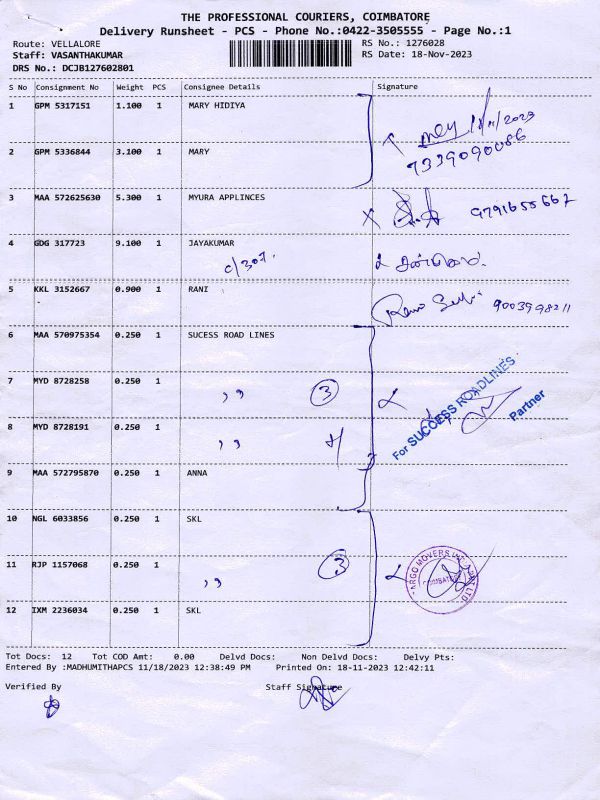 THE PROFESSIONAL COURIERS, COIMBATORE
Delivery Runsheet - PCS - Phone No.:0422-3505555 - Page No.:1
Route: VELLALORE RS No.: 1276028
Staff: VASANTHAKUMAR RS Date: 18-Nov-2023
DRS No.: DCJB127602801
S No Consignment No Weight PCS Consignee Details Signature
1 GPM 5317151 1.100 1 MARY HIDIYA
18/11/2023
7339090086
2 GPM 5336844 3.100 1 MARY
3 MAA 572625630 5.300 1 MYURA APPLINCES 9791655667
4 GDG 317723 9.100 1 JAYAKUMAR
5 KKL 3152667 0.900 1 RANI
6 MAA 570975354 0.250 1 SUCESS ROAD LINES
7 MYD 8728258 0.250 1 ,, 3
For SUCCESS ROADLINES
Partner
8 MYD 8728191 0.250 1 ,,
9 MAA 572795870 0.250 1 ANNA
10 NGL 6033856 0.250 1 SKL
11 RJP 1157068 0.250 1 ,, 3
12 IXM 2236034 0.250 1 SKL
Tot Docs: 12 Tot COD Amt: 0.00 Delvd Docs: Non Delvd Docs: Delvy Pts:
Entered By :MADHUMITHAPCS 11/18/2023 12:38:49 PM Printed On: 18-11-2023 12:42:11
Verified By Staff Signature